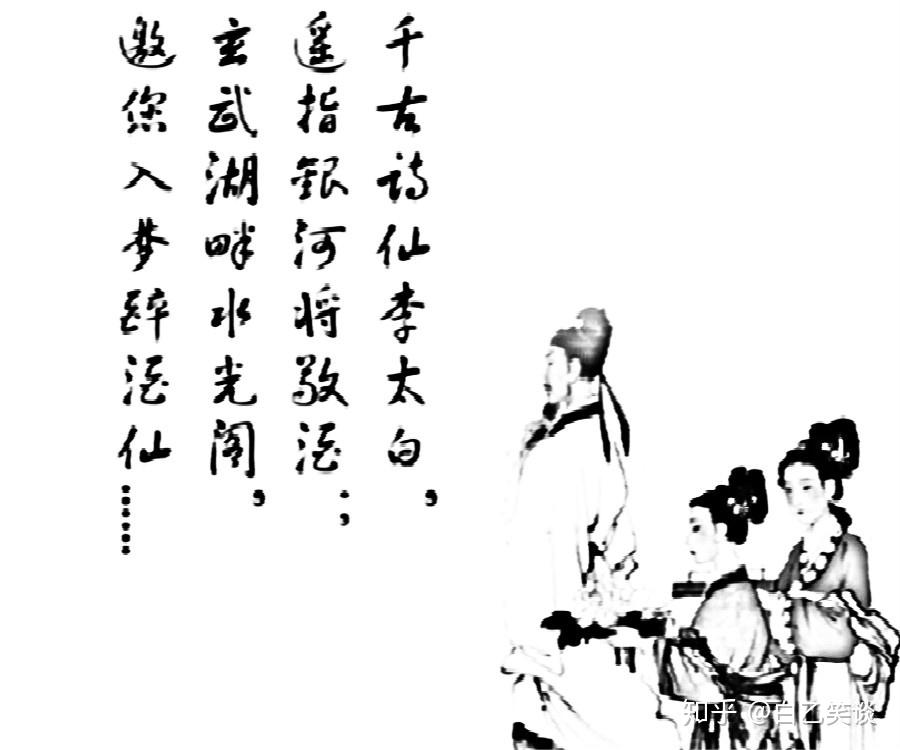 千古诗仙李太白，
遥指銀河将敬酒；
玄武湖畔水光阁，
邀您入梦醉酒仙……
知乎 @白乙笑谈